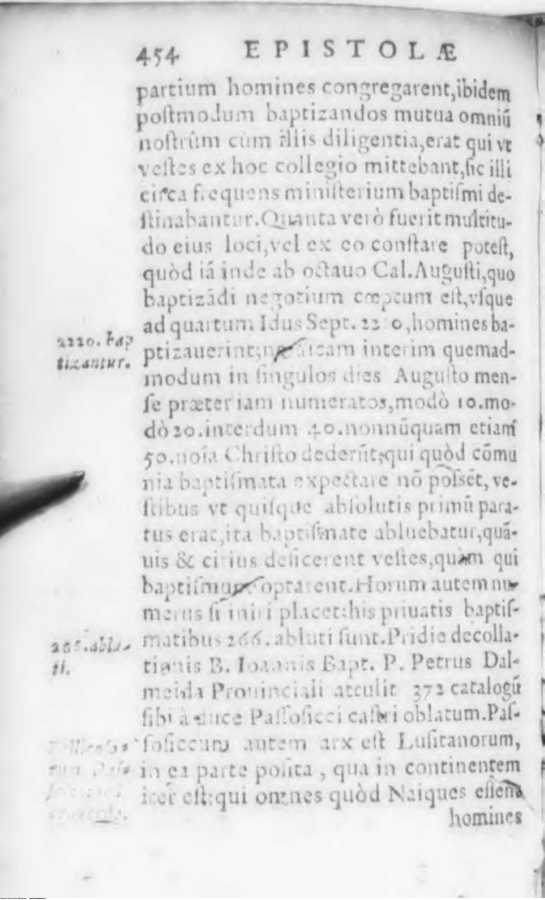 454 EPISTOLÆ
partium homines congregarent, ibidem
poſtmodum baptizandos mutua omniũ
noſtrûm cùm illis diligentia, erat qui vt
veſtes ex hoc collegio mittebant, ſic illi
circa frequens miniſterium baptiſmi de-
ſtinabantur. Quanta verò fuerit multitu-
do eius loci, vel ex eo conſtare poteſt,
quòd iã inde ab octauo Cal. Auguſti, quo
baptizãdi negotium cœptum eſt, vſque
ad quartum Idus Sept. 2210, homines ba-
2220. bap
tizantur.
ptizauerint; interim quemad-
modum in ſingulos dies Auguſto men-
ſe præter iam numeratos, modò 10. mo-
dò 20. interdum 40. nonnũquam etiam
50. noīa Chriſto dederũt; qui quòd cõmu
nia baptiſmata expectare nõ poſſẽt, ve-
ſtibus vt quiſque abſolutis primũ para-
tus erat, ita baptiſmate abluebatur, quã-
uis & citius deficerent veſtes, quàm qui
baptiſmum optarent. Horum autem nu-
merus ſi iniri placet: his priuatis baptiſ-
266. ablu-
ti.
matibus 266. abluti ſunt. Pridie decolla-
tionis B. Ioannis Bapt. P. Petrus Dal-
meida Prouinciali attulit 372 catalogũ
ſibi à duce Paſſoſicci caſtri oblatum. Paſ-
ſoſiccum autem arx eſt Luſitanorum,
in ea parte poſita, qua in continentem
iter eſt: qui omnes quòd Naiques eſſent
homines